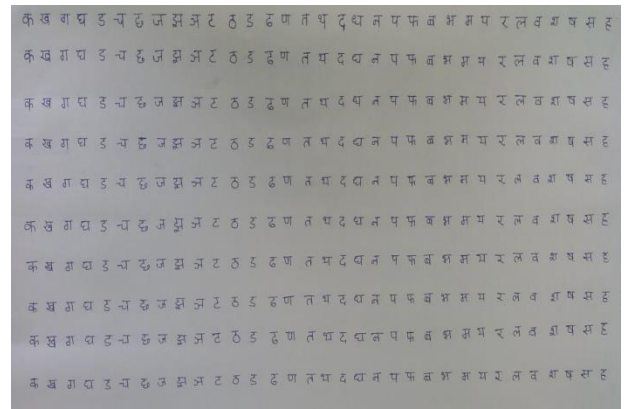 क ख ग घ ड च छ ज झ ञ ट ठ ड ढ ण त थ द ध न प फ ब भ म य र ल व श ष स ह
क ख ग घ ड च छ ज झ ञ ट ठ ड ढ ण त थ द ध न प फ ब भ म य र ल व श ष स ह
क ख ग घ ड च छ ज झ ञ ट ठ ड ढ ण त थ द ध न प फ ब भ म य र ल व श ष स ह
क ख ग घ ड च छ ज झ ञ ट ठ ड ढ ण त थ द ध न प फ ब भ म य र ल व श ष स ह
क ख ग घ ड च छ ज झ ञ ट ठ ड ढ ण त थ द ध न प फ ब भ म य र ल व श ष स ह
क ख ग घ ड च छ ज झ ञ ट ठ ड ढ ण त थ द ध न प फ ब भ म य र ल व श ष स ह
क ख ग घ ड च छ ज झ ञ ट ठ ड ढ ण त थ द ध न प फ ब भ म य र ल व श ष स ह
क ख ग घ ड च छ ज झ ञ ट ठ ड ढ ण त थ द ध न प फ ब भ म य र ल व श ष स ह
क ख ग घ ड च छ ज झ ञ ट ठ ड ढ ण त थ द ध न प फ ब भ म य र ल व श ष स ह
क ख ग घ ड च छ ज झ ञ ट ठ ड ढ ण त थ द ध न प फ ब भ म य र ल व श ष स ह